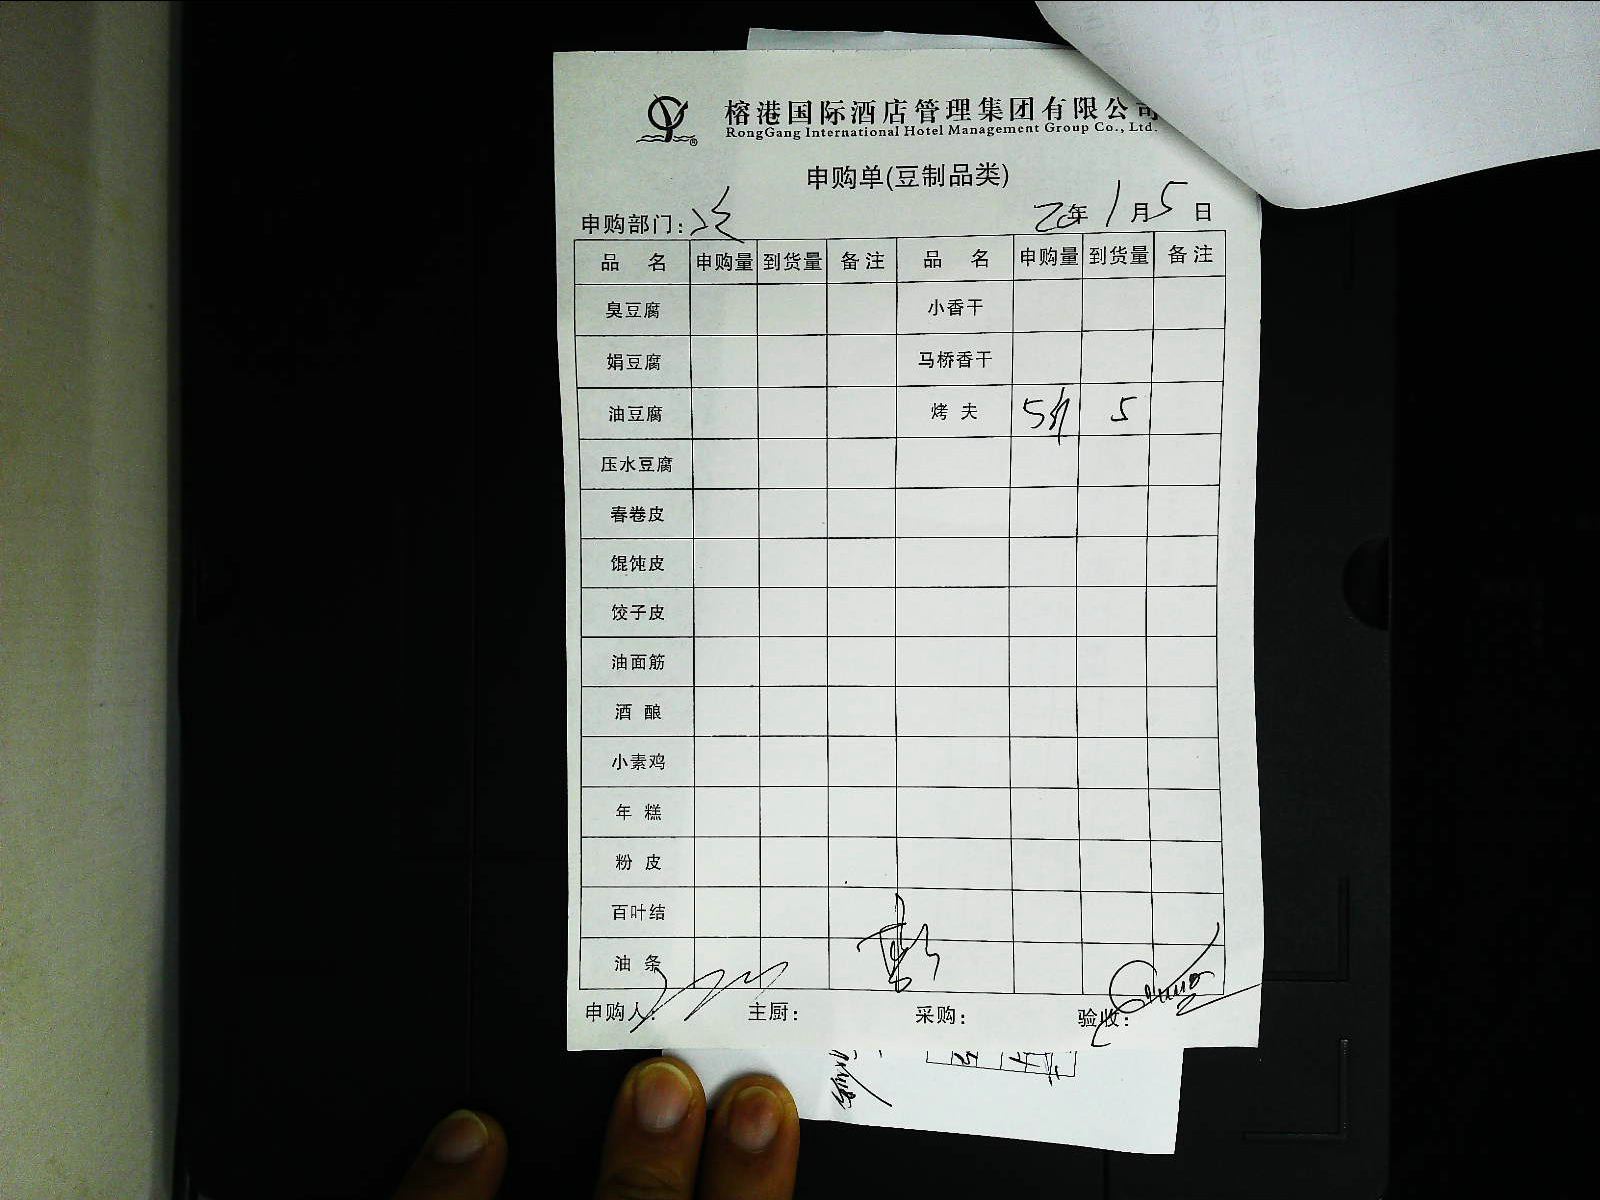 榕港国际酒店管理集团有限公司
RongGang International Hotel Management Group Co., Ltd.
申购单(豆制品类)
申购部门: 年 1 月 5 日
品 名 申购量 到货量 备注 品 名 申购量 到货量 备注
臭豆腐 小香干
娟豆腐 马桥香干
油豆腐 烤 夫 5斤 5
压水豆腐
春卷皮
馄饨皮
饺子皮
油面筋
酒 酿
小素鸡
年 糕
粉 皮
百叶结
油 条
申购人: 主厨: 采购: 验收: